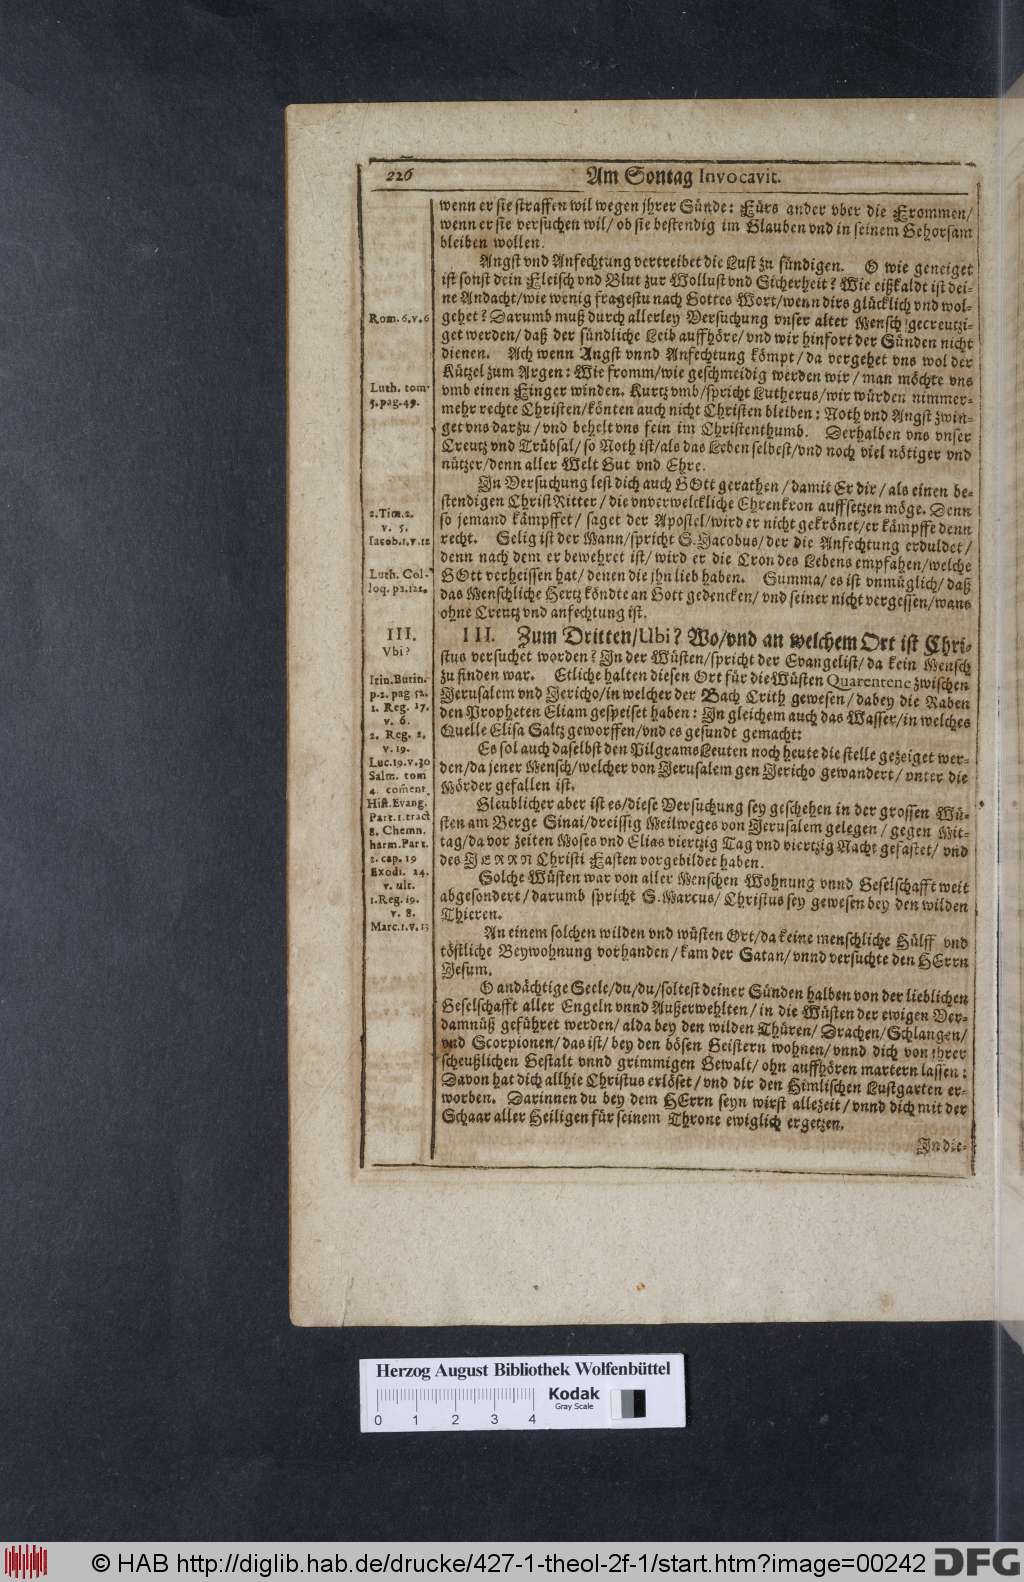 226
Am Sontag Invocavit.
wenn er sie straffen wil wegen jhrer Sünde: Fürs ander vber die Frommen/
wenn er sie versuchen wil/ ob sie bestendig im Glauben vnd in seinem Gehorsam
bleiben wollen.
Angst vnd Anfechtung vertreibet die Lust zu sündigen. O wie geneiget
ist sonst dein Fleisch vnd Blut zur Wollust vnd Sicherheit? Wie eißkaldt ist dei-
ne Andacht/wie wenig fragestu nach Gottes Wort/wenn dirs glücklich vnd wol-
gehet? Darumb muß durch allerley Versuchung vnser alter Mensch gecreutzi-
get werden/ daß der sündliche Leib auffhöre/ vnd wir hinfort der Sünden nicht
dienen. Ach wenn Angst vnnd Anfechtung kömpt/ da vergehet vns wol der
Kützel zum Argen: Wie fromm/wie geschmeidig werden wir/ man möchte vns
vmb einen Finger winden. Kurtz vmb/spricht Lutherus/wir würden nimmer-
mehr rechte Christen/könten auch nicht Christen bleiben: Noth vnd Angst zwin-
get vns darzu/vnd behelt vns fein im Christenthumb. Derhalben vns vnser
Creutz vnd Trübsal/ so Noth ist/als das Leben selbest/vnd noch viel nötiger vnd
nützer/denn aller Welt Gut vnd Ehre.
In Versuchung lest dich auch GOtt gerathen/damit Er dir/als einen be-
stendigen ChristRitter/die vnverwelckliche Ehrenkron auffsetzen möge. Denn
so jemand kämpffet/ saget der Apostel/wird er nicht gekrönet/er kämpffe denn
recht. Selig ist der Mann/spricht S. Jacobus/der die Anfechtung erduldet/
denn nach dem er bewehret ist/ wird er die Cron des Lebens empfahen/welche
GOtt verheissen hat/denen die jhn lieb haben. Summa/ es ist vnmüglich/ daß
das Menschliche Hertz köndte an Gott gedencken/ vnd seiner nicht vergessen/wans
ohne Creutz vnd anfechtung ist.
III. Zum Dritten/Ubi? Wo/vnd an welchem Ort ist Chri-
stus versuchet worden? In der Wüsten/spricht der Evangelist/da kein Mensch
zu finden war. Etliche halten diesen Ort für die Wüsten Quarentene zwischen
Jerusalem vnd Jericho/in welcher der Bach Crith gewesen/dabey die Raben
den Propheten Eliam gespeiset haben: In gleichem auch das Wasser/in welches
Quelle Elisa Saltz geworffen/vnd es gesundt gemacht:
Es sol auch daselbst den PilgramsLeuten noch heute die stelle gezeiget wer-
den/da jener Mensch/welcher von Jerusalem gen Jericho gewandert/ vnter die
Mörder gefallen ist.
Gleublicher aber ist es/diese Versuchung sey geschehen in der grossen Wü-
sten am Berge Sinai/dreissig Meilweges von Jerusalem gelegen/ gegen Mit-
tag/da vor zeiten Moses vnd Elias viertzig Tag vnd viertzig Nacht gefastet/ vnd
des HERRN Christi Fasten vorgebildet haben.
Solche Wüsten war von aller Menschen Wohnung vnnd Geselschafft weit
abgesondert/darumb spricht S. Marcus/ Christus sey gewesen bey den wilden
Thieren.
An einem solchen wilden vnd wüsten Ort/da keine menschliche Hülff vnd
töstliche Beywohnung vorhanden/kam der Satan/vnnd versuchte den HErrn
Jesum.
O andächtige Seele/du/du/soltest deiner Sünden halben von der lieblichen
Geselschafft aller Engeln vnnd Außerwehlten/ in die Wüsten der ewigen Ver-
damnüß geführet werden/ alda bey den wilden Thüren/ Drachen/Schlangen/
vnd Scorpionen/das ist/ bey den bösen Geistern wohnen/vnnd dich von jhrer
scheußlichen Gestalt vnnd grimmigen Gewalt/ ohn auffhören martern lassen:
Davon hat dich allhie Christus erlöset/vnd dir den Himlischen Lustgarten er-
worben. Darinnen du bey dem HErrn seyn wirst allezeit/vnnd dich mit der
Schaar aller Heiligen für seinem Throne ewiglich ergetzen.
In die-
Rom. 6. v. 6
Luth. tom.
5. pag. 49.
2. Tim. 2.
v. 5.
Iacob. 1. v. 12
Luth. Col-
loq. p2. 121.
III.
Vbi?
Itin. Bütin.
p. 2. pag 52.
1. Reg. 17.
v. 6.
2. Reg. 2.
v. 19.
Luc. 19. v. 30
Salm. tom
4. coment.
Hist. Evang.
Part. 1. tract
8. Chemn.
harm. Part.
2. cap. 19
Exodi. 24.
v. ult.
1. Reg. 19.
v. 8.
Marc. 1. v. 13
Herzog August Bibliothek Wolfenbüttel
Kodak
Gray Scale
0 1 2 3 4
© HAB http://diglib.hab.de/drucke/427-1-theol-2f-1/start.htm?image=00242
DFG